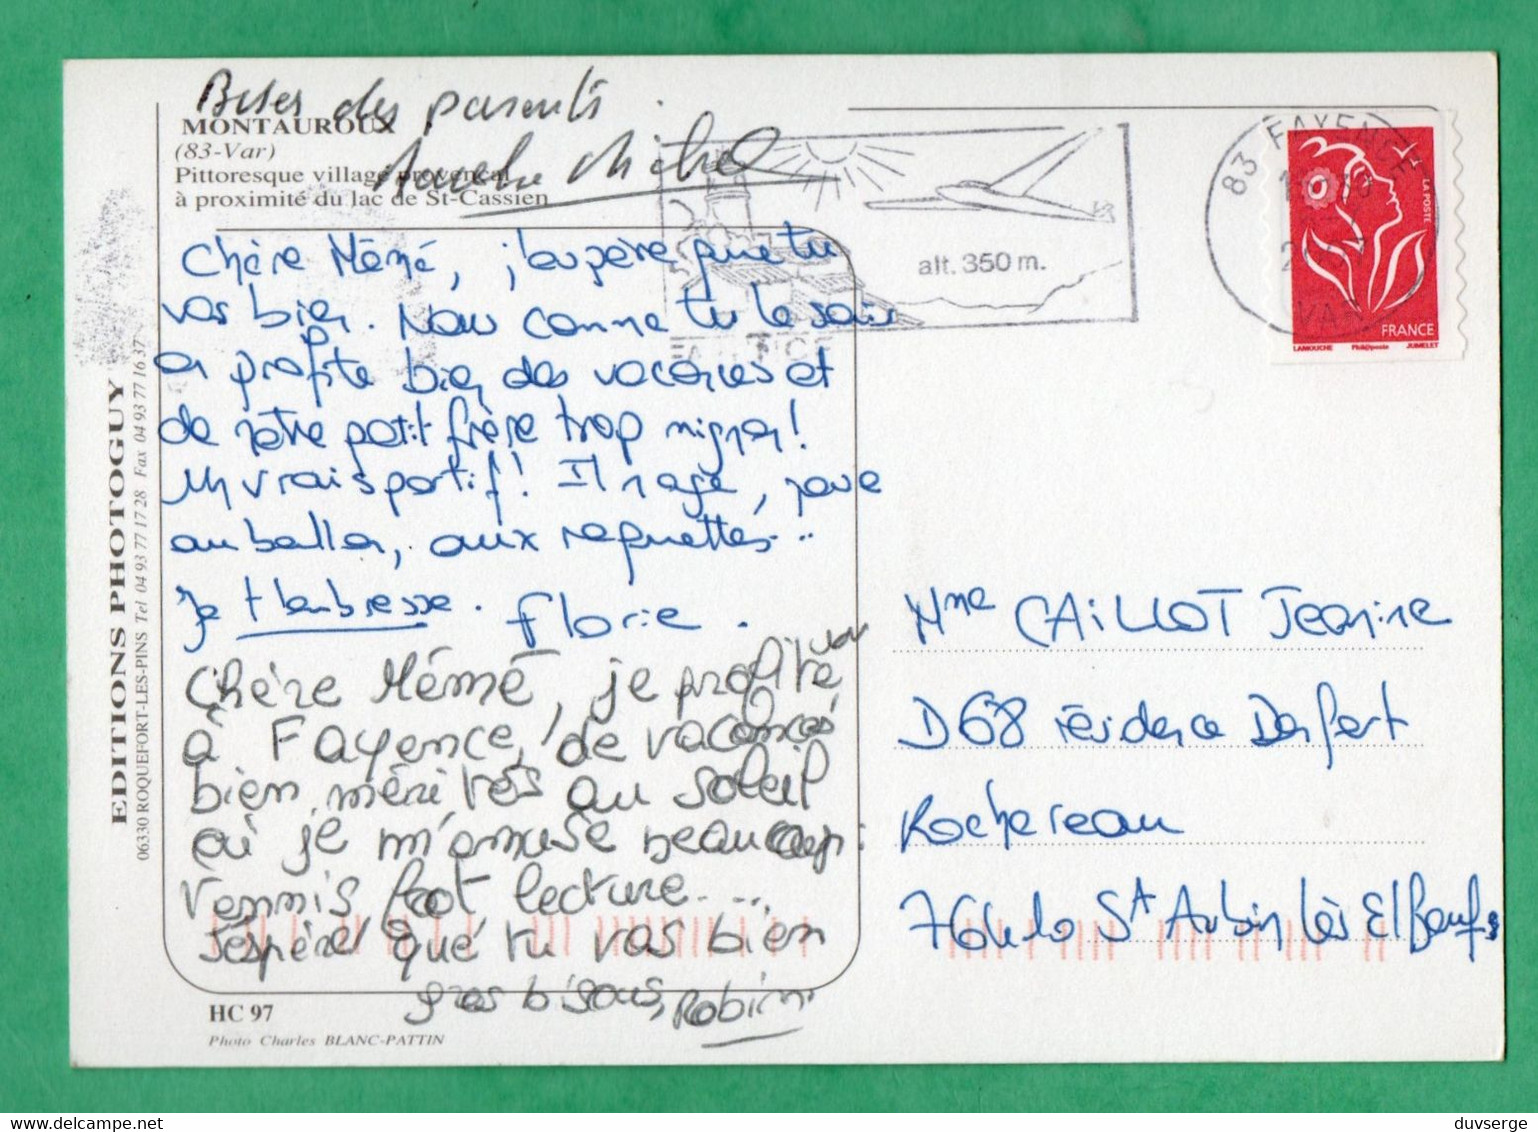 Bises des parents
Michel
MONTAUROUX
(83-Var)
Pittoresque village provençal
à proximité du lac de St-Cassien
Chère Mémé, j'espère que tu
vas bien. Nous comme tu le sais
on profite bien des vacances et
de notre petit frère trop mignon!
Un vrai sportif! Il nage, joue
au ballon, aux raquettes...
Je t'embrasse. Florie.
Chère Mémé, je profite
à Fayence, de vacances
bien méritées au soleil
où je m'amuse beaucoup:
Tennis foot lecture...
J'espère que tu vas bien
gros bisous, Robin
HC 97
Photo Charles BLANC-PATTIN
EDITIONS PHOTOGUY
06330 ROQUEFORT-LES-PINS Tel 04 93 77 17 28 Fax 04 93 77 16 37
alt. 350 m.
83 FAYENCE
VAR
LA POSTE
FRANCE
LAMOUCHE Phil@poste JUMELET
Mme CAILLOT Jeanine
D68 résidence Denfert
Rochereau
St Aubin lès Elbeuf
duvserge